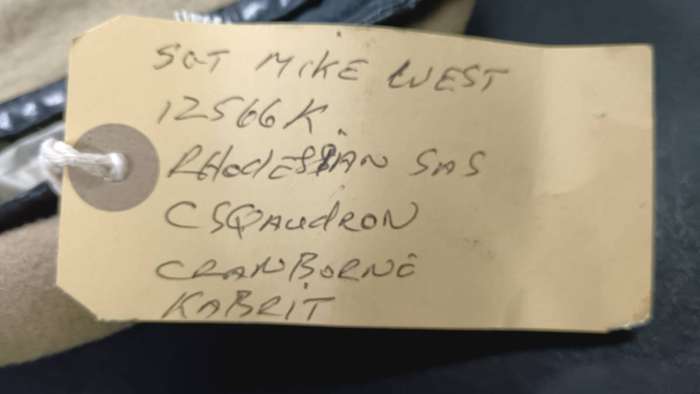 SGT MIKE WEST
12566K.
RHODESIAN SAS
C SQAUDRON
CRANBORNE
KABRIT